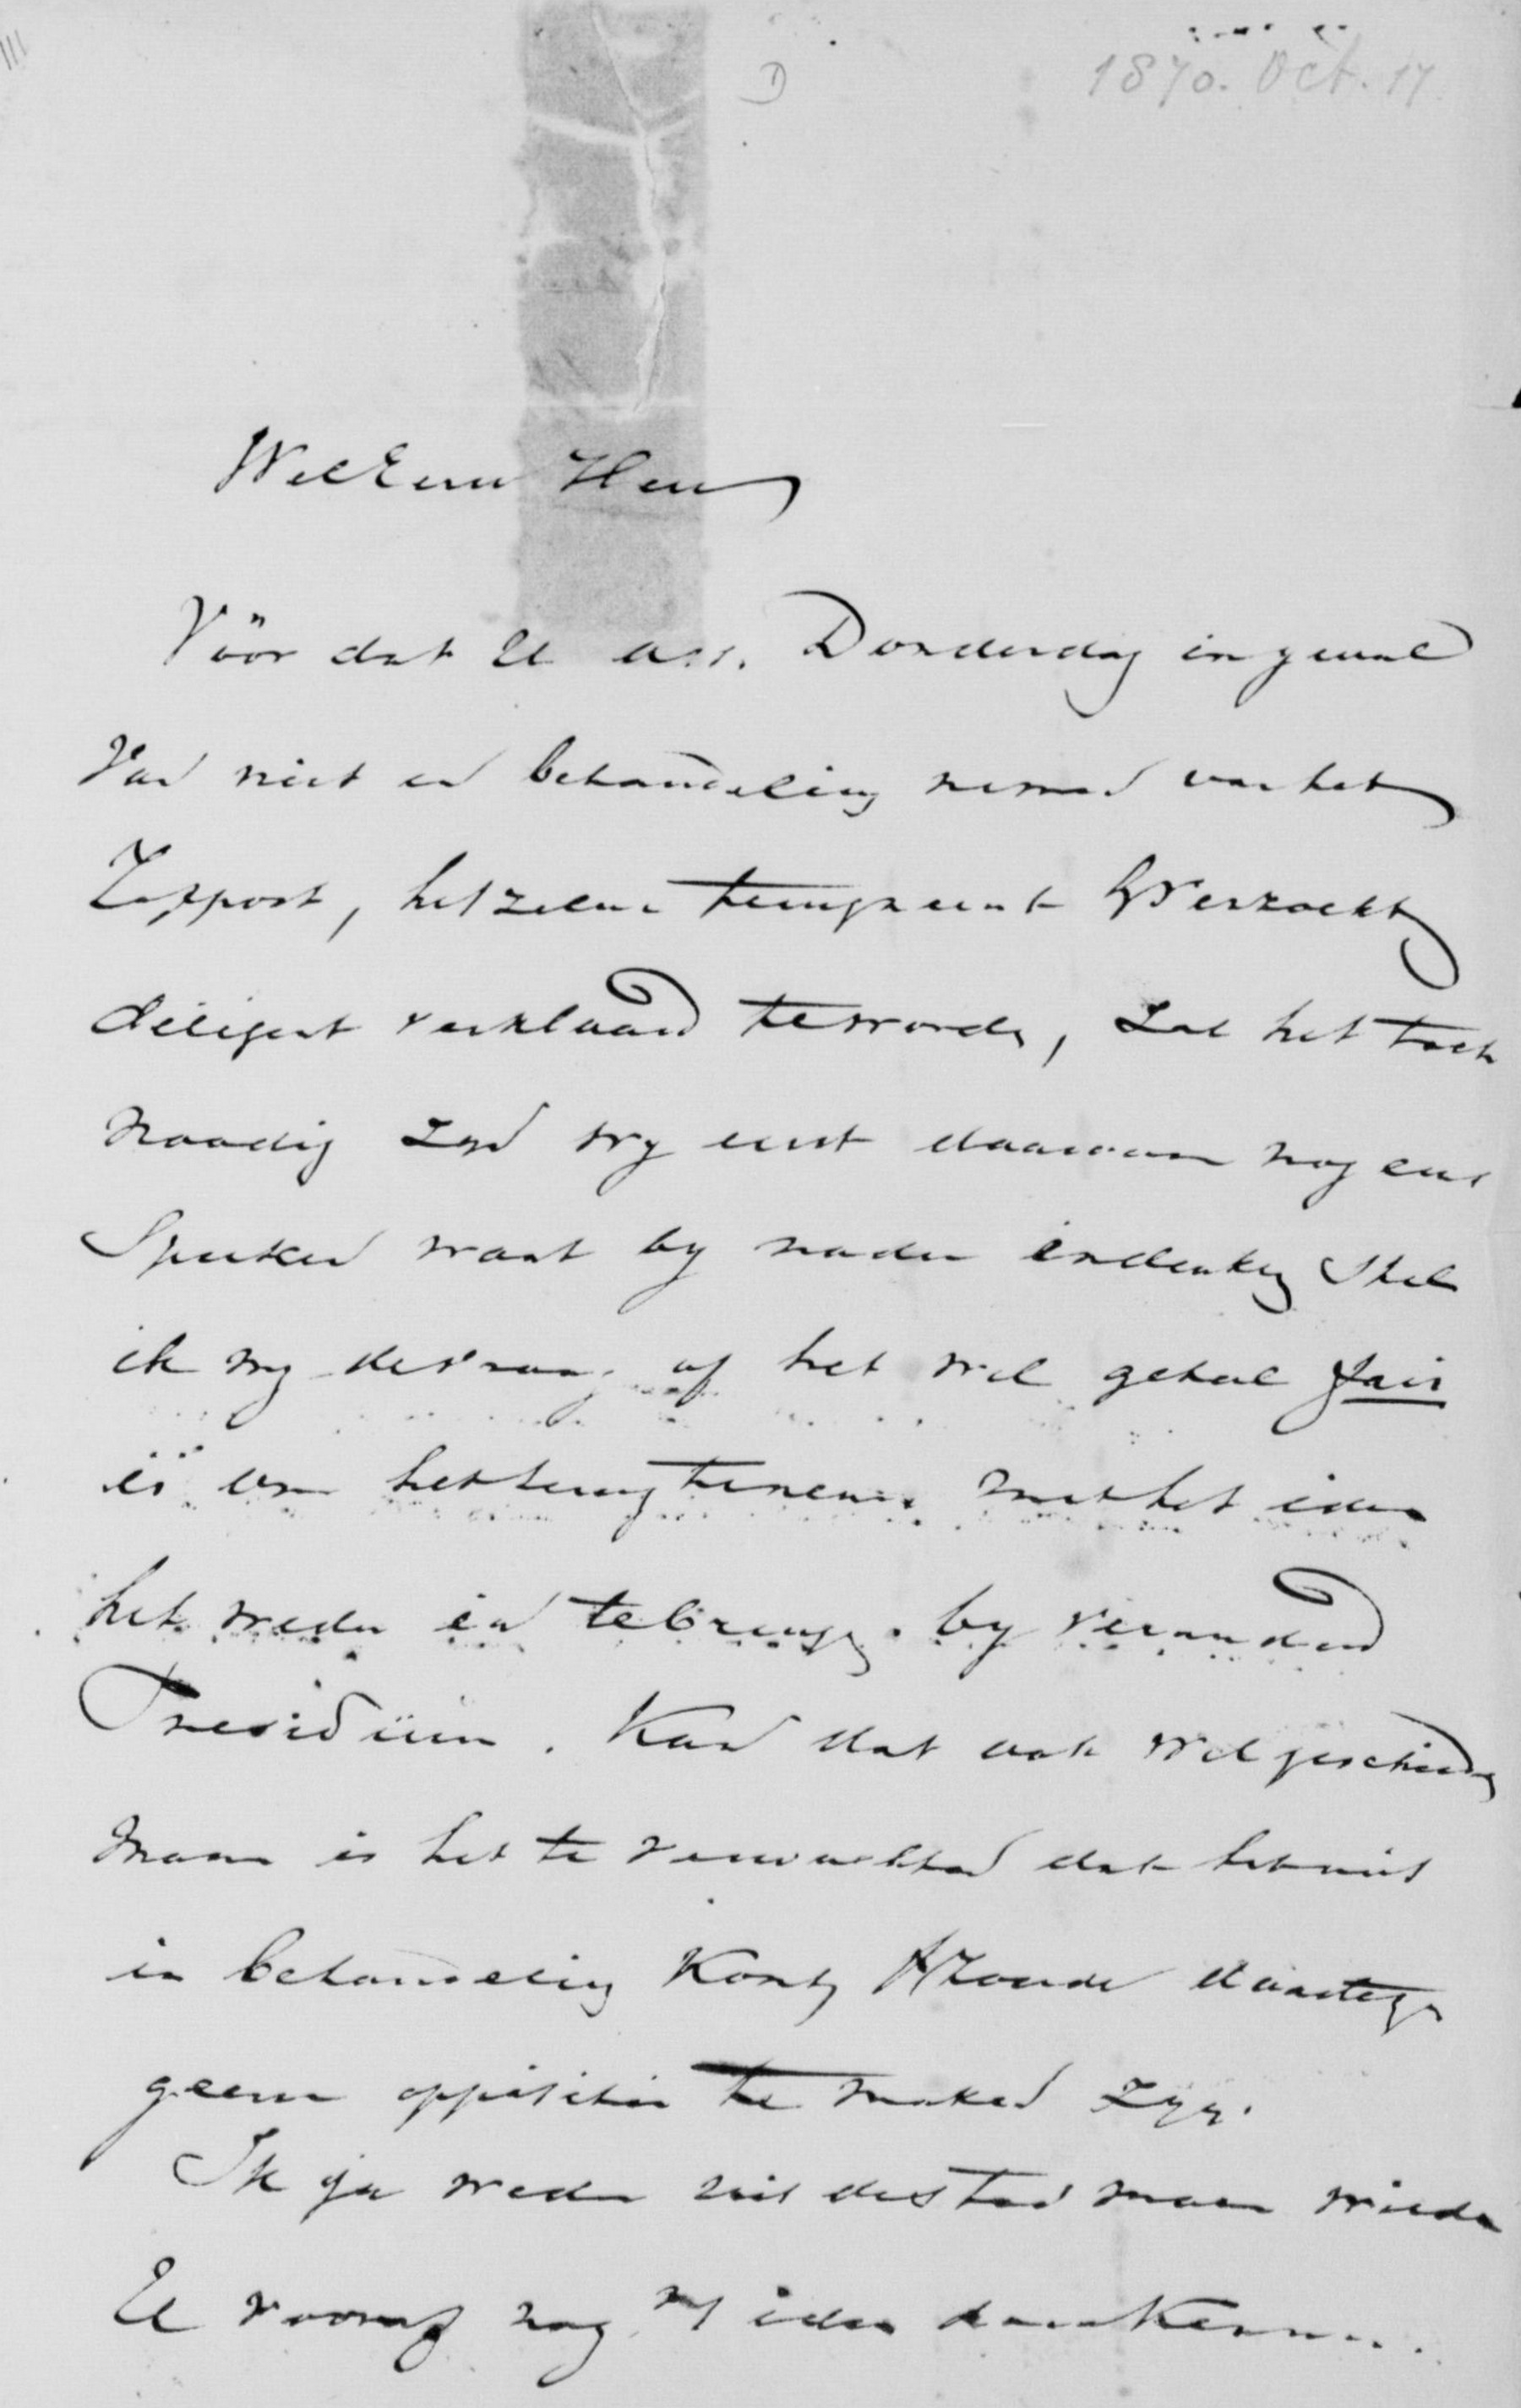 1870. Oct. 17
D
WelEerw Heer
Vöor dat U ass. Donderdag in geval
Van niet in behandeling nemen van het
Rapport, hetzelve terugneemt & Verzoekt
diligent verklaard te worden, zal het toch
noodig zyn wy eerst daarover nog eens
Spreken want by nader indenken Stel
ik my de vraag of het wel geheel fair
is om het terug te nemen met het idee
het weder in te brengen by veranderd
Presidium. Kan dat ook wel geschieden
maar is het te verwachten dat het niet
in behandeling komt & zoude daartegen
geene oppositie te maken zyn.
Ik ga weder uit de stad maar wilde
U vooraf nog myn idee doen kennen.